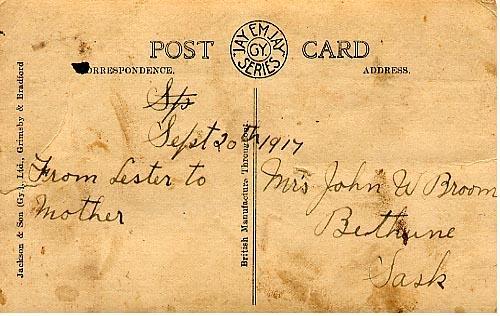 POST CARD
"JAY EM JAY" GY. SERIES
CORRESPONDENCE.
ADDRESS.
Sept 20th 1917
From Lester to
Mother
Mrs John W Broom
Bethune
Sask
Jackson & Son (Gy.), Ltd., Grimsby & Bradford
British Manufacture Throughout